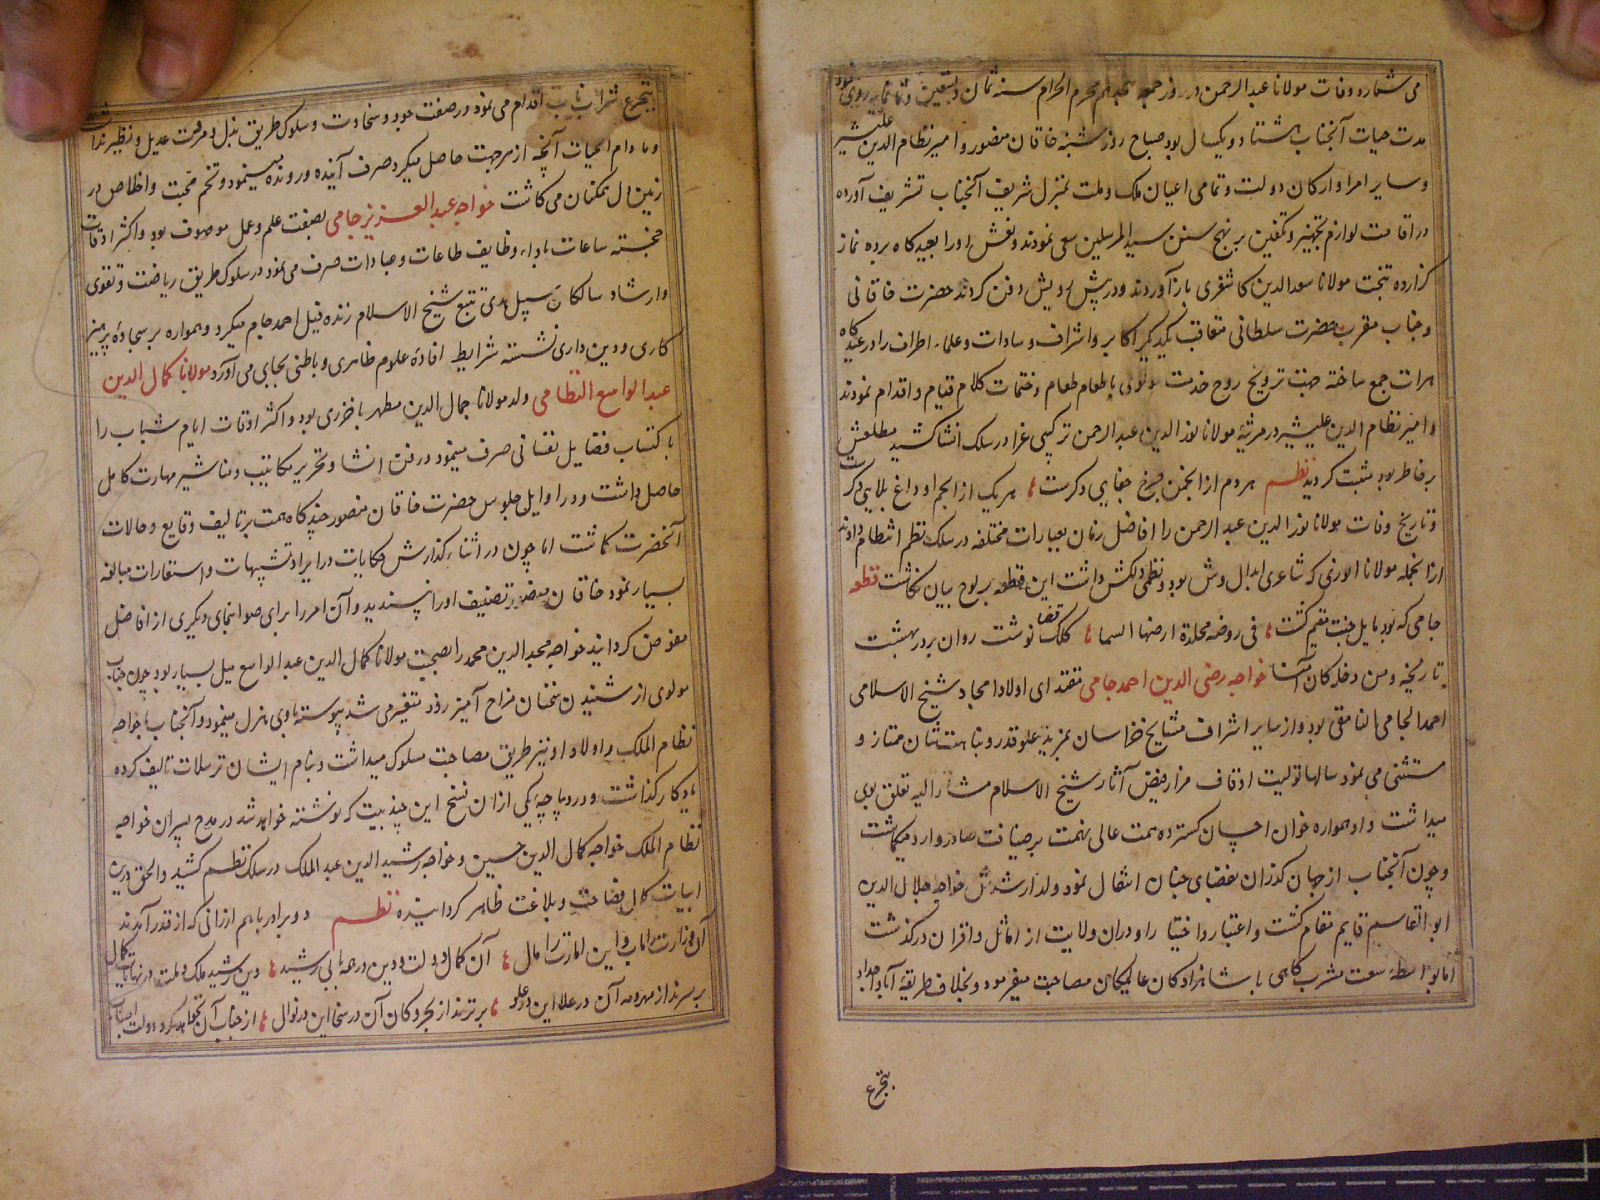 می شمارد وفات مولانا عبدالرحمن در روز جمعه هجدهم محرم الحرام سنه ثمان و تسعین و ثمانمایه روی نمود
مدت حیات آنجناب هشتاد و یکسال بود صباح روز شنبه خاقان منصور و امیر نظام الدین علیشیر
و سایر امرا و ارکان دولت و تمامی اعیان ملک و ملت بمنزل شریف آنجناب تشریف آورده
در اقامت لوازم تجهیز و تکفین بر نهج سنن سید المرسلین سعی نمودند و نعش او را بعیدگاه برده نماز
گزارده تبخت مولانا سعدالدین کاشغری بازآوردند و در پیش رویش دفن کردند حضرت خاقانی
و جناب مقرب حضرت سلطانی متعاقب یکدیگر اکابر و اشراف و سادات و علماء اطراف را در عیدگاه
هرات جمع ساخته جهت ترویج روح خدمت مولوی باطعام طعام و ختمات کلام قیام و اقدام نمودند
و امیر نظام الدین علیشیر در مرثیه مولانا نورالدین عبدالرحمن ترکیبی غرا در سلک انشا کشید مطلعش
بر خاطر بود ثبت گردید نظم هر دم از انجمن چرخ جفایی دگرست هر یک از انجم او داغ بلایی دگرست
و تاریخ وفات مولانا نورالدین عبدالرحمن را افاضل زمان بعبارات مختلفه در سلک نظم انتظام دادند
ازانجمله مولانا که شاعری ابدال وش بود و نظمی دلکش داشت این قطعه بر لوح بیان نگاشت قطعه
جامی که بود مایل جنت مقیم گشت فی روضة مخلدة ارضها السما کلک قضا نوشت روان بر در بهشت
تاریخه و من دخله کان آمنا خواجه رضی الدین احمد جامی مقتدای اولاد امجاد شیخ الاسلامی
احمد الجامی النامقی بود و از سایر اشراف مشایخ خراسان بمزید علو قدر و نباهت شان ممتاز و
مستثنی می نمود سالها تولیت اوقاف مزار فیض آثار شیخ الاسلام مشارالیه تعلق بوی
میداشت و او همواره خوان احسان گسترده همت عالی نهمت بر ضیافت صادر و وارد میگماشت
و چون آنجناب از جهان گذران بفضای جنان انتقال نمود ولد ارشدش خواجه جلال الدین
ابوالقاسم قایم مقام گشت و اعتبار و اختیار او در ان ولایت از امثال و اقران درگذشت
اما بواسطه سعت مشرب گاهی با شاهزادگان عالیمکان مصاحبت میفرمود و بخلاف طریقه آبا و اجداد
بتجرع
بتجرع شراب ناب اقدام می نمود و در صفت جود و سخاوت و سلوک طریق بذل و مروت عدیل و نظیر نداشت
و مادام الحیات آنچه از هر جهت حاصل میکرد صرف آینده و رونده مینمود و تخم محبت و اخلاص در
زمین دل همگنان می کاشت خواجه عبدالعزیز جامی بصفت علم و عمل موصوف بود و اکثر اوقات
خجسته ساعات باداء وظایف طاعات و عبادات صرف می نمود در سلوک طریق ریاضت و تقوی
و ارشاد سالکان سبیل هدی تتبع شیخ الاسلام زنده فیل احمد جام میکرد و همواره بر سجاده پرهیز
کاری و دین داری نشسته شرایط افاده علوم ظاهری و باطنی بجای می آورد مولانا کمال الدین
عبدالواسع النظامی ولد مولانا جمال الدین مطهر باخرزی بود و اکثر اوقات ایام شباب را
باکتساب فضایل نفسانی صرف مینمود در فن انشا و تحریر مکاتیب و مناشیر مهارت کامل
حاصل داشت و در اوایل جلوس حضرت خاقان منصور چندگاه همت بر تالیف وقایع و حالات
آنحضرت گماشت اما چون در اثناء گذارش حکایات در ایراد تشبیهات و استعارات مبالغه
بسیار نمود خاقان منصور تصنیف او را نپسندید و آن امر را برای صوابنمای دیگری از افاضل
مفوض گردانید خواجه مجدالدین محمد را بصحبت مولانا کمال الدین عبدالواسع میل بسیار بود چون جناب
مولوی از شنیدن سخنان مزاح آمیز زود متغیر می شد پیوسته با وی هزل مینمود و آنجناب با خواجه
نظام الملک و اولاد او نیز طریق مصاحبت مسلوک میداشت و بنام ایشان ترسلات تالیف کرده
یادگار گذاشت و در دیباچه یکی ازان نسخ این چند بیت که نوشته خواهد شد در مدح پسران خواجه
نظام الملک خواجه کمال الدین حسین و خواجه رشید الدین عبدالملک در سلک نظم کشید و الحق درین
ابیات کمال فصاحت و بلاغت ظاهر گردانیده نظم دو برادر باهم ارزانی که از قدر آمدند
آن وزارت را مآب و این امارت را مآل آن کمال دولت و دین در همه بابی رشید وین رشید ملک و ملت در نهایات کمال
برسرند از مهر و مه آن در علا این در علو برترند از بحر و کان آن در سخا این در نوال از جناب آن